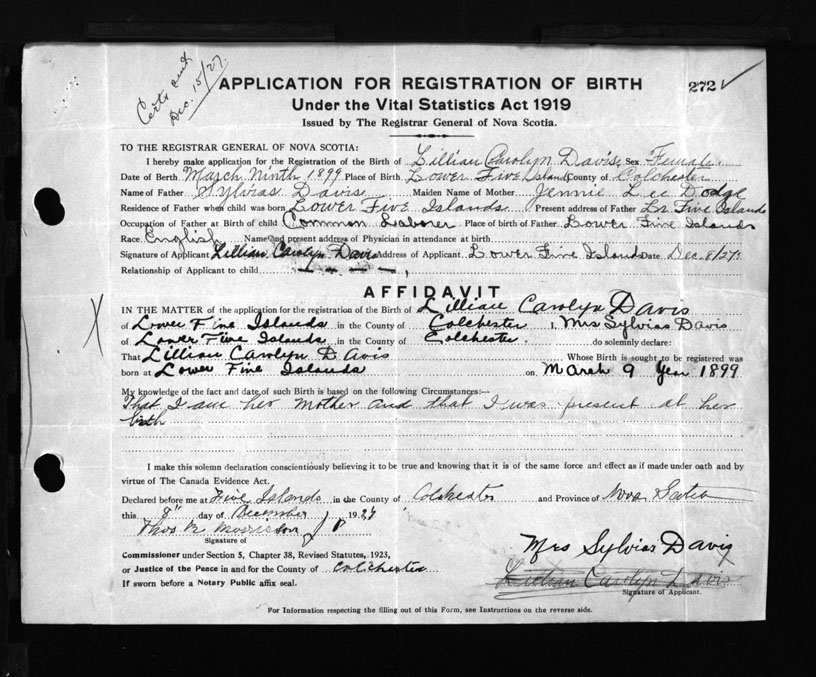 Certs and
Dec. 15/27.
APPLICATION FOR REGISTRATION OF BIRTH
272 ✓
Under the Vital Statistics Act 1919
Issued by The Registrar General of Nova Scotia.
TO THE REGISTRAR GENERAL OF NOVA SCOTIA:
I hereby make application for the Registration of the Birth of Lillian Carolyn Davis, Sex Female.
Date of Birth March Ninth 1899 Place of Birth Lower Five Islands County of Colchester
Name of Father Sylvias Davis Maiden Name of Mother Jennie Lee Dodge
Residence of Father when child was born Lower Five Islands Present address of Father Lr Five Islands
Occupation of Father at Birth of child Common Laborer Place of birth of Father Lower Five Islands
Race English Name and present address of Physician in attendance at birth
Signature of Applicant Lillian Carolyn Davis Address of Applicant Lower Five Islands Date Dec. 8/27
Relationship of Applicant to child
AFFIDAVIT
IN THE MATTER of the application for the registration of the Birth of Lillian Carolyn Davis
of Lower Five Islands in the County of Colchester I, Mrs Sylvias Davis
of Lower Five Islands in the County of Colchester. do solemnly declare:
That Lillian Carolyn Davis Whose Birth is sought to be registered was
born at Lower Five Islands on March 9 Year 1899
My knowledge of the fact and date of such Birth is based on the following Circumstances:--
That I am her Mother and that I was present at her
birth
I make this solemn declaration conscientiously believing it to be true and knowing that it is of the same force and effect as if made under oath and by
virtue of The Canada Evidence Act.
Declared before me at Five Islands in the County of Colchester and Province of Nova Scotia
this 8" day of December 1927
Thos R Morrison J P
Signature of
Mrs Sylvias Davis
Commissioner under Section 5, Chapter 38, Revised Statutes, 1923,
or Justice of the Peace in and for the County of Colchester
Lillian Carolyn Davis
If sworn before a Notary Public affix seal.
Signature of Applicant.
For Information respecting the filling out of this Form, see Instructions on the reverse side.